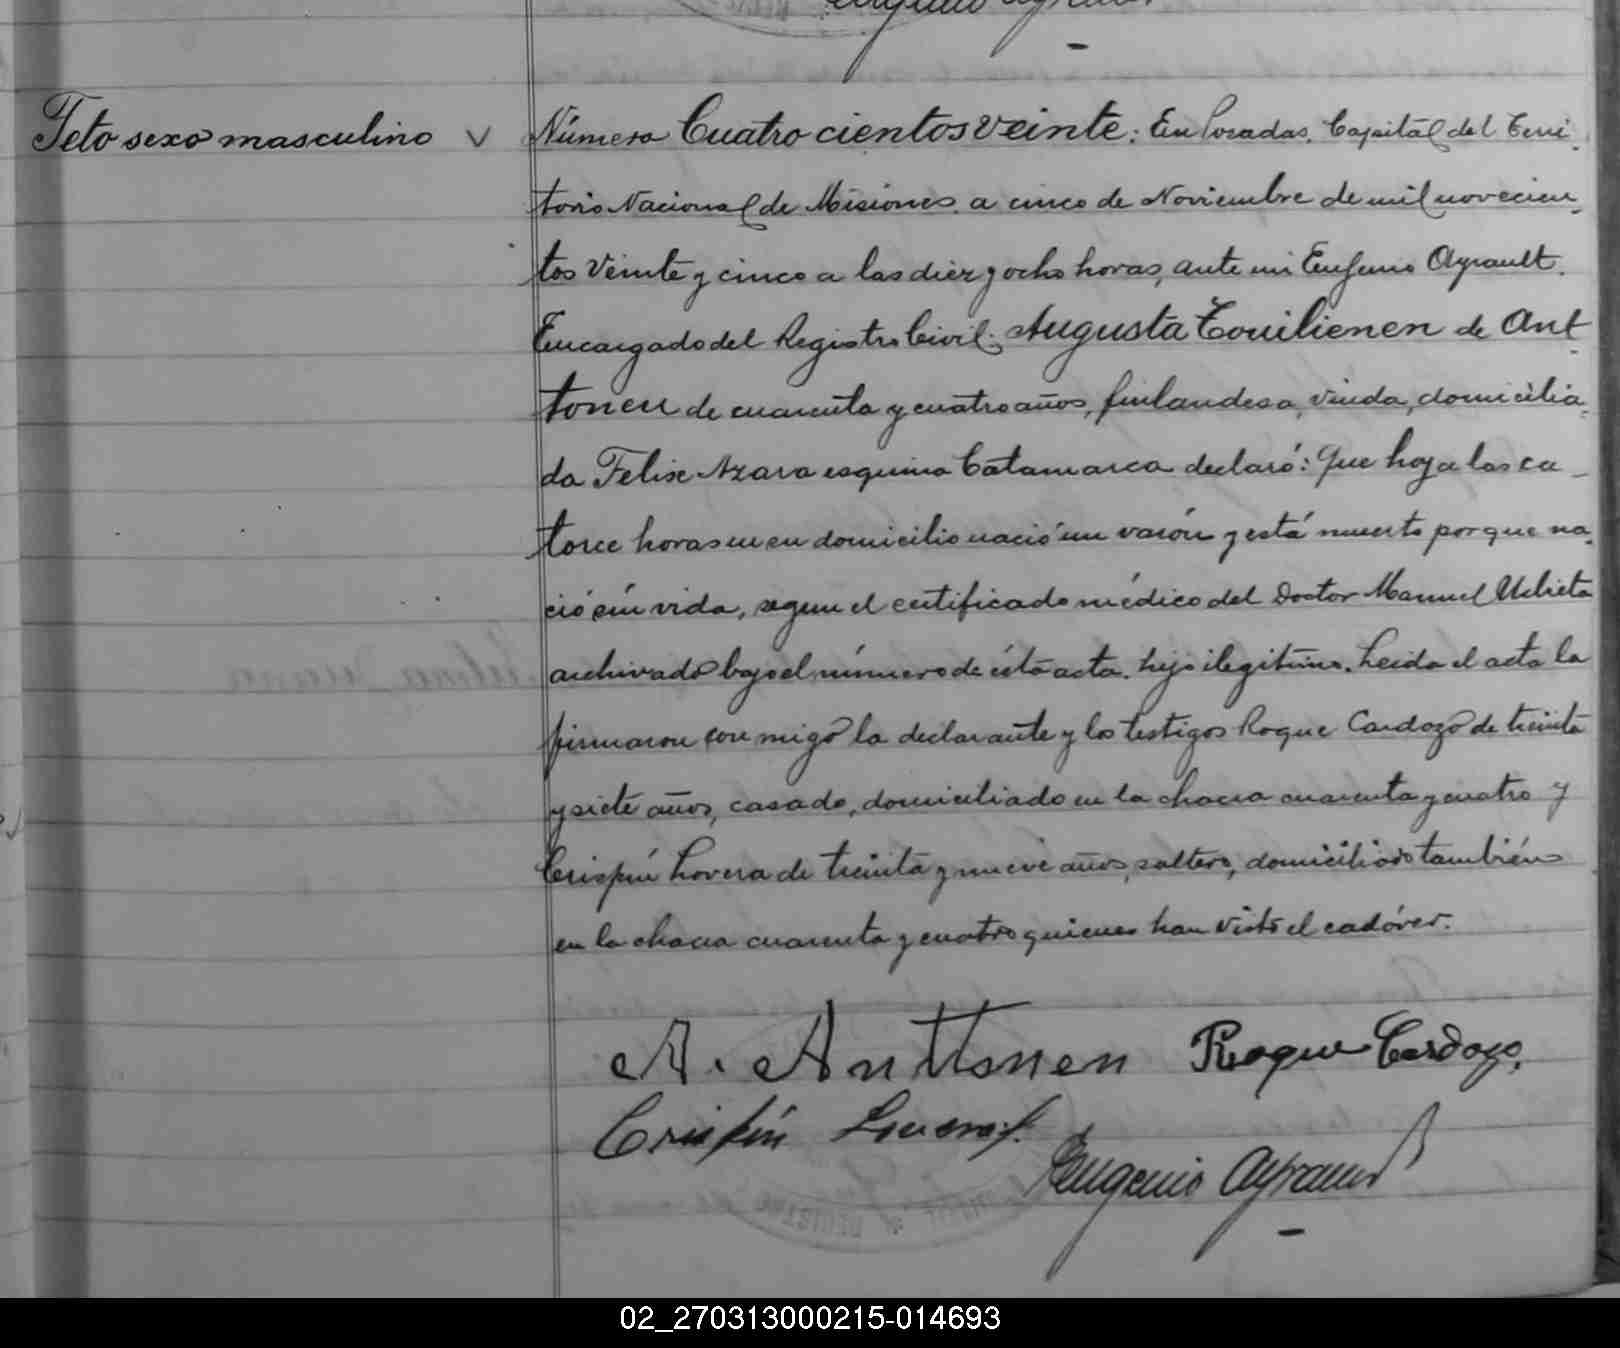 Feto sexo masculino V
Número Cuatro cientos Veinte: En Posadas, Capital del Terri
torio Nacional de Misiones, a cinco de Noviembre de mil novecien
tos Veinte y cinco a las diez y ocho horas, ante mi Eugenio Ayrault.
Encargado del Registro Civil: Augusta Touilienen de Ant
tonen de cuarenta y cuatro años, finlandesa, viuda, domicilia
da Felix Azara esquina Catamarca declaró: Que hoy a las ca
torce horas en su domicilio nació un varón y está muerto porque na
ció sin vida, segun el certificado médico del Doctor Manuel
archivado bajo el número de ésta acta. hijo ilegitimo. Leida el acta la
firmaron con migo la declarante y los testigos Roque Cardozo de treinta
y siete años, casado, domiciliado en la chacra cuarenta y cuatro y
Crispín Lovera de treinta y nueve años, soltero, domiciliado también
en la chacra cuarenta y cuatro quienes han visto el cadáver.
A. Anttonen Roque Cardozo.
Crispín
Eugenio Ayrault
02_270313000215-014693